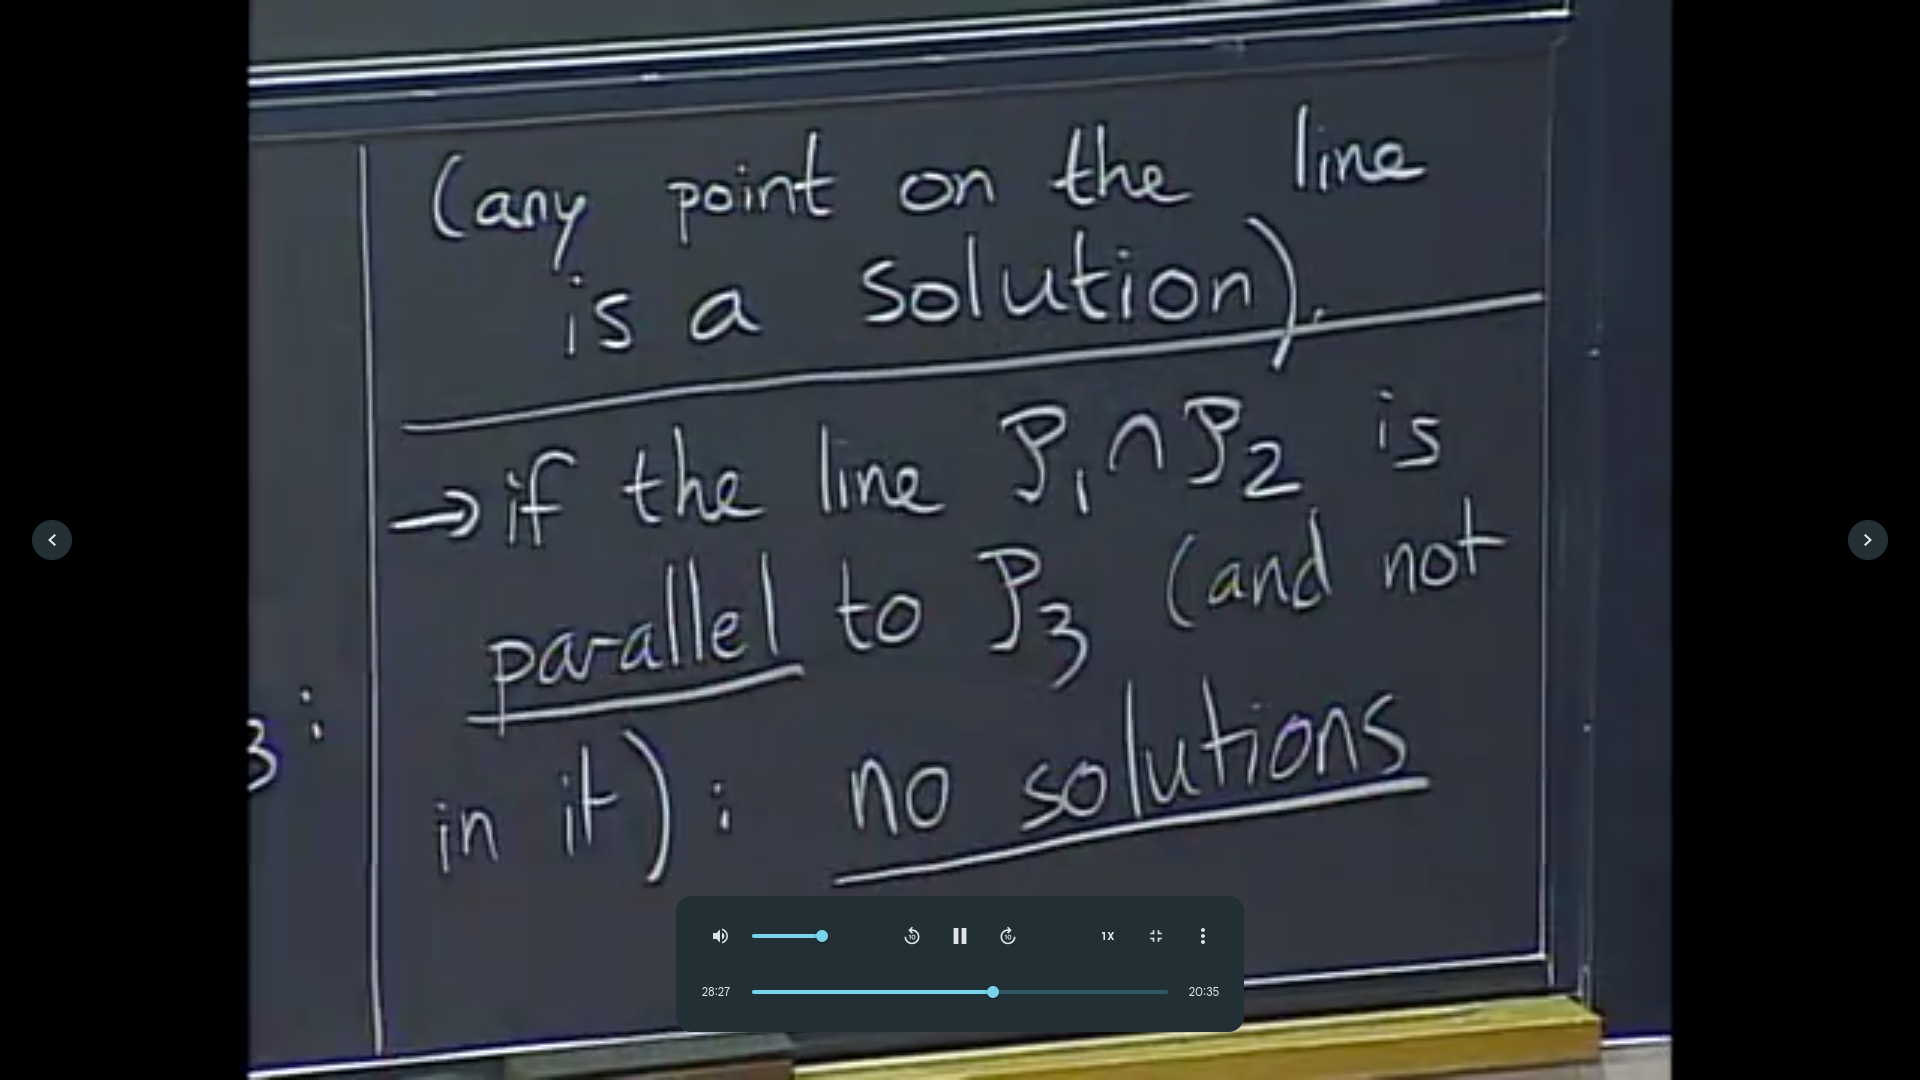 (any point on the line
is a solution).
→ if the line P₁∩P₂ is
parallel to P₃ (and not
in it): no solutions
3:
10
10
1X
28:27
20:35